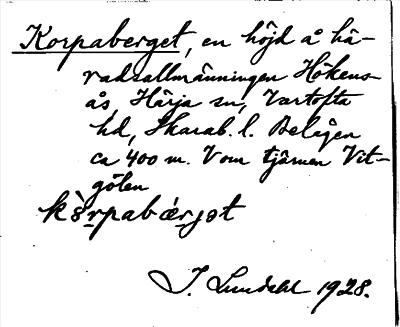 Korpaberget, en höjd å hä-
radsallmänningen Hökens-
ås, Härja sn, Vartofta
hd, Skarab. l. Belägen
ca 400 m. V om tjärnen Vit-
gölen
kòrpabærjət
J. Lundahl 1928.